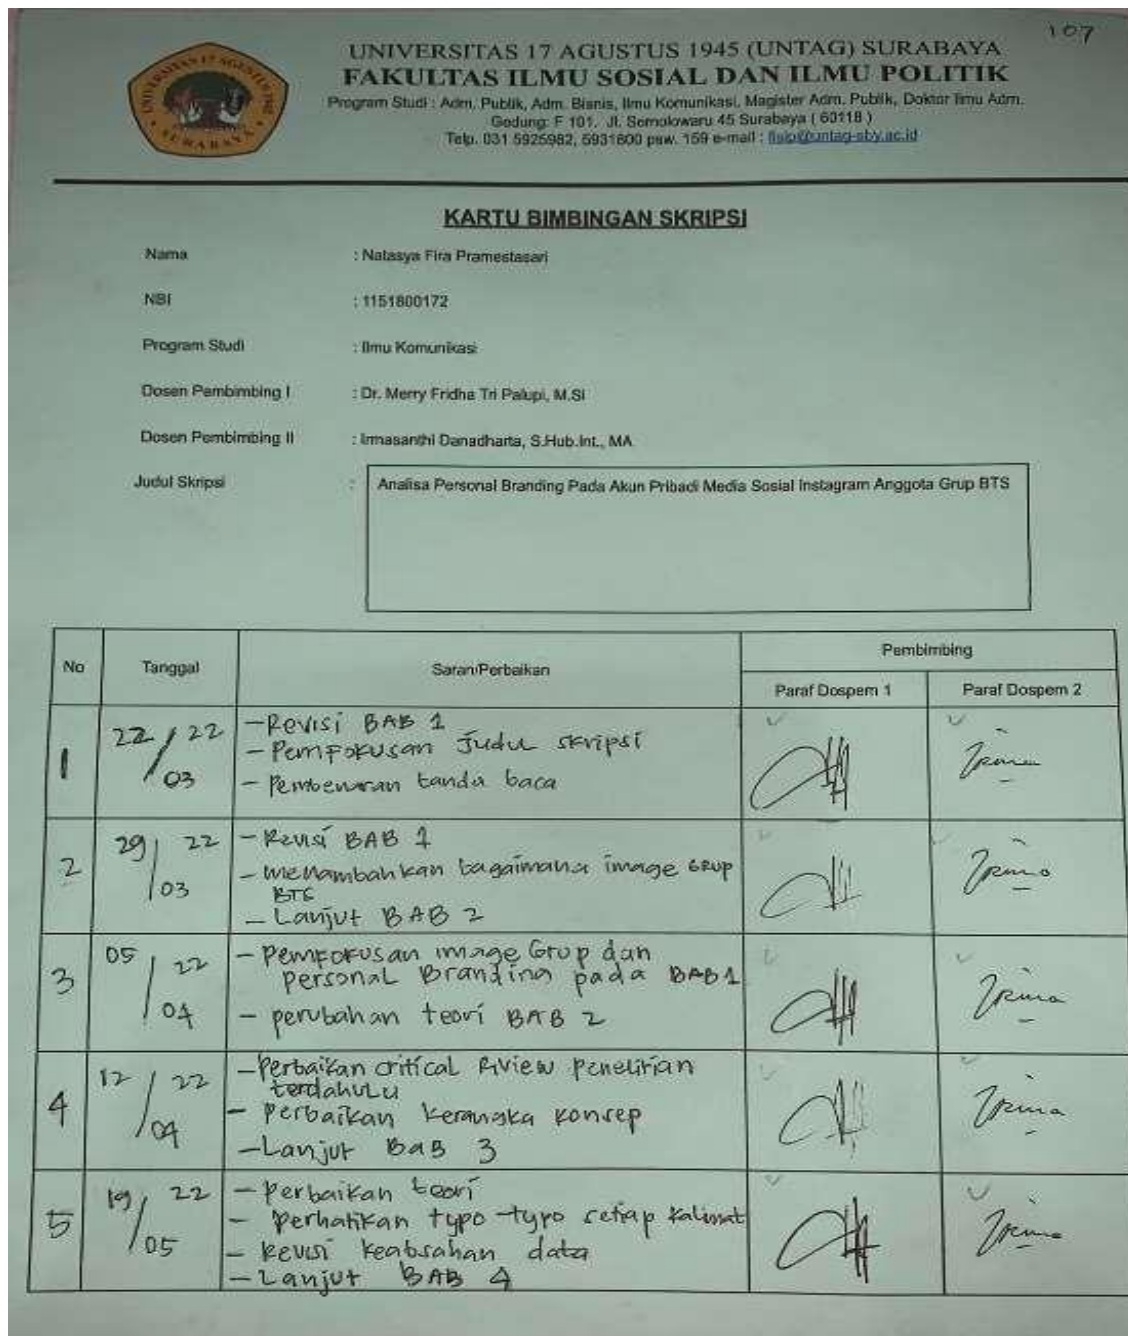 107
UNIVERSITAS 17 AGUSTUS 1945 (UNTAG) SURABAYA
FAKULTAS ILMU SOSIAL DAN ILMU POLITIK
Program Studi : Adm. Publik, Adm. Bisnis, Ilmu Komunikasi, Magister Adm. Publik, Doktor Ilmu Adm.
Gedung: F 101, Jl. Semolowaru 45 Surabaya ( 60118 )
Telp. 031 5925982, 5931800 psw. 159 e-mail : fisip@untag-sby.ac.id
UNIVERSITAS 17 AGUSTUS 1945
SURABAYA
KARTU BIMBINGAN SKRIPSI
Nama : Natasya Fira Pramestasari
NBI : 1151800172
Program Studi : Ilmu Komunikasi
Dosen Pembimbing I : Dr. Merry Fridha Tri Palupi, M.Si
Dosen Pembimbing II : Irmasanthi Danadharta, S.Hub.Int., MA
Judul Skripsi : Analisa Personal Branding Pada Akun Pribadi Media Sosial Instagram Anggota Grup BTS
No Tanggal Saran/Perbaikan Pembimbing
Paraf Dospem 1 Paraf Dospem 2
1 22/03 22 - Revisi BAB 1
- Pemfokusan Judul skripsi
- Pembenaran tanda baca
2 29/03 22 - Revisi BAB 1
- Menambahkan bagaimana image Grup
BTS
- Lanjut BAB 2
3 05/04 22 - Pemfokusan image Grup dan
personal Branding pada BAB 1
- perubahan teori BAB 2
4 12/04 22 - Perbaikan critical Review penelitian
terdahulu
- perbaikan kerangka konsep
- Lanjut BAB 3
5 19/05 22 - Perbaikan teori
- Perhatikan typo-typo setiap kalimat
- Revisi keabsahan data
- Lanjut BAB 4